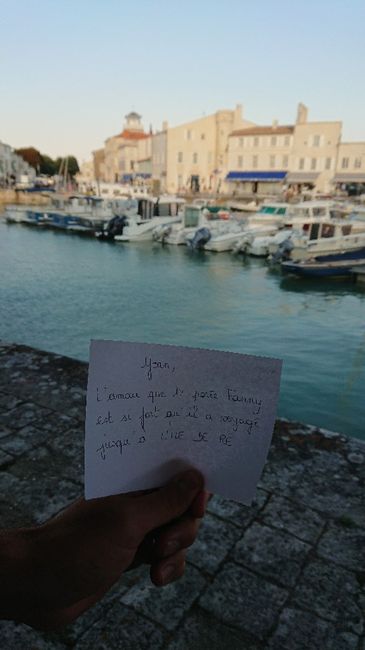 Yann,
L'amour que te porte Fanny
est si fort qu'il a voyagé
jusqu'à L'ILE DE RÉ